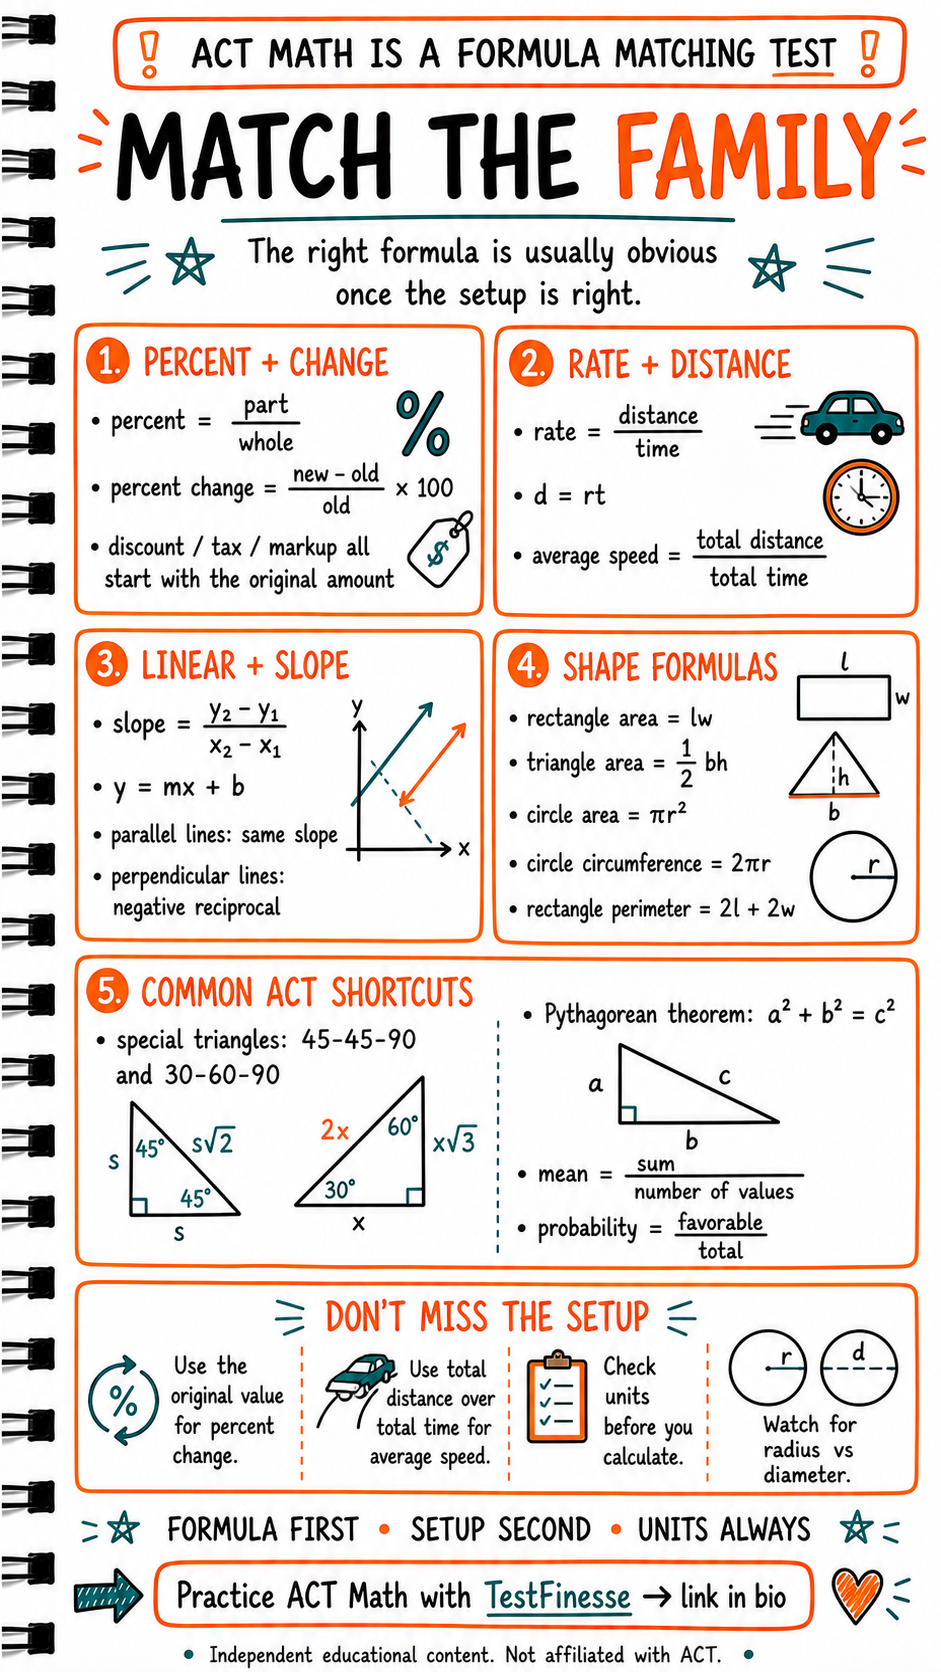 ! ACT MATH IS A FORMULA MATCHING TEST !
MATCH THE FAMILY
The right formula is usually obvious
once the setup is right.
1. PERCENT + CHANGE
• percent = part / whole
%
• percent change = new - old / old × 100
• discount / tax / markup all
start with the original amount
$
2. RATE + DISTANCE
• rate = distance / time
• d = rt
• average speed = total distance / total time
3. LINEAR + SLOPE
• slope = y₂ - y₁ / x₂ - x₁
• y = mx + b
• parallel lines: same slope
• perpendicular lines:
negative reciprocal
y
x
4. SHAPE FORMULAS
• rectangle area = lw
• triangle area = 1/2 bh
• circle area = πr²
• circle circumference = 2πr
• rectangle perimeter = 2l + 2w
l
w
h
b
r
5. COMMON ACT SHORTCUTS
• special triangles: 45-45-90
and 30-60-90
s
45°
s√2
45°
s
2x
60°
x√3
30°
x
• Pythagorean theorem: a² + b² = c²
a
c
b
• mean = sum / number of values
• probability = favorable / total
DON'T MISS THE SETUP
%
Use the
original value
for percent
change.
Use total
distance over
total time for
average speed.
Check
units
before you
calculate.
r
d
Watch for
radius vs
diameter.
FORMULA FIRST • SETUP SECOND • UNITS ALWAYS
Practice ACT Math with TestFinesse → link in bio
• Independent educational content. Not affiliated with ACT. •